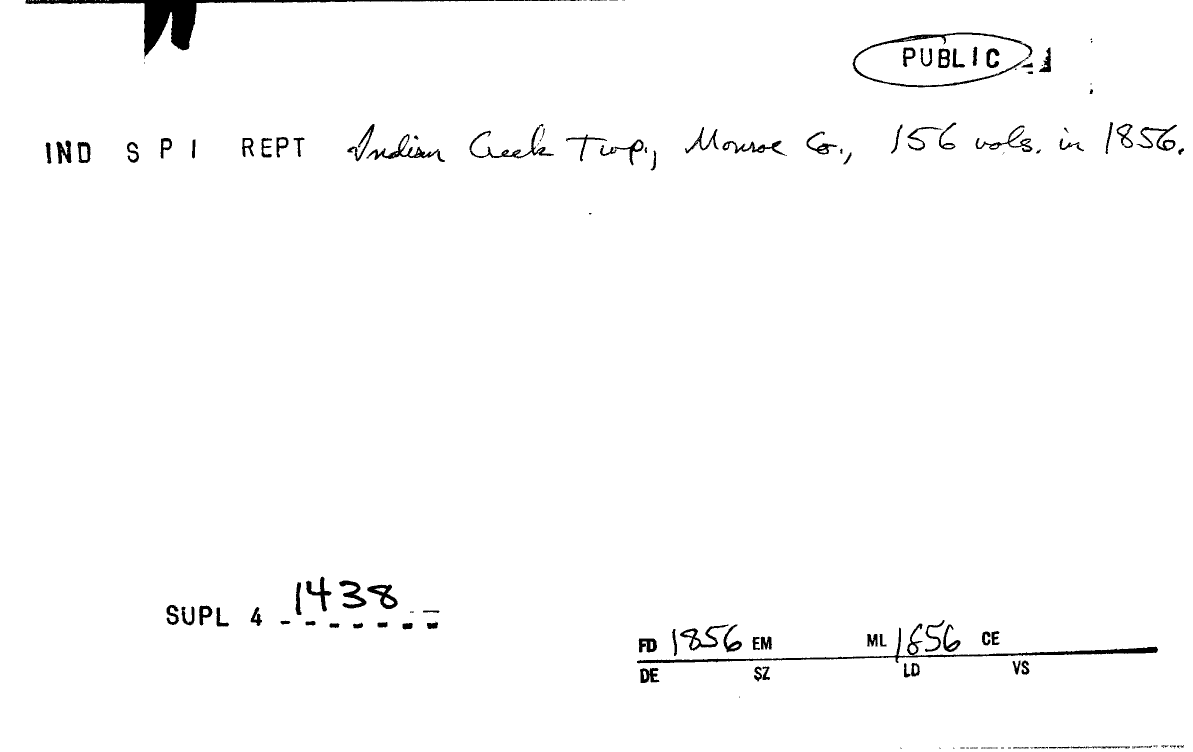 PUBLIC
IND S P I REPT Indian Creek Twp., Monroe Co., 156 vols. in 1856.
SUPL 4 1438
FD 1856 EM ML 1856 CE
DE SZ LD VS